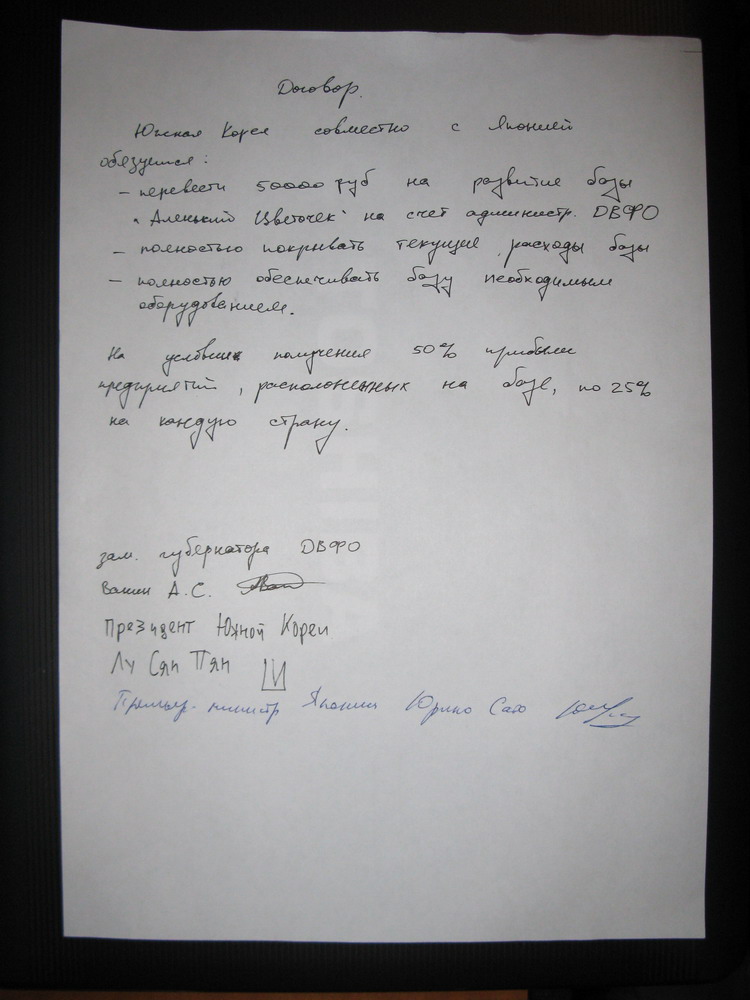 Договор.
Южная Корея совместно с Японией
обязуется:
– перевести 50000 руб на развитие базы
"Аленький Цветочек" на счет администр. ДВФО
– полностью покрывать текущие расходы базы
– полностью обеспечивать базу необходимым
оборудованием.
На условии получения 50% прибыли
предприятий, расположенных на базе, по 25%
на каждую страну.
зам. губернатора ДВФО
А.С.
Президент Южной Кореи
Лу Сян Пян
Премьер-министр Японии Юрико Сато